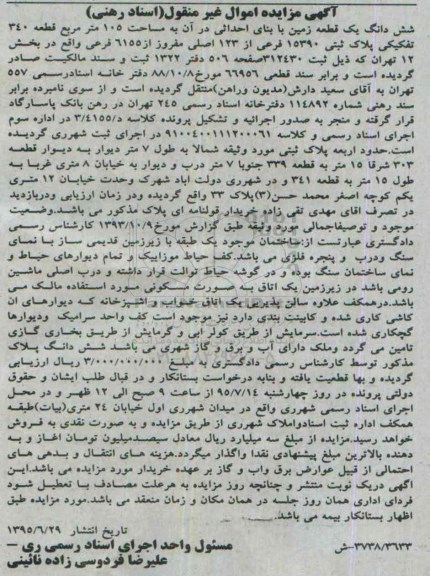 آگهی مزایده اموال غیر منقول(اسناد رهنی)
شش دانگ یک قطعه زمین با بنای احداثی در آن به مساحت ۱۰۵ متر مربع قطعه ۳۴۰
تفکیکی پلاک ثبتی ۱۵۳۹۰ فرعی از ۱۲۳ اصلی مفروز از۶۱۵۵ فرعی واقع در بخش
۱۲ تهران که ذیل ثبت ۳۱۲۴۳۰صفحه ۵۰۶ دفتر ۱۳۲۲ ثبت و سند مالکیت صادر
گردیده است و برابر سند قطعی ۶۶۹۵۶ مورخ۸۸/۱۰/۸ دفتر خانه اسنادرسمی ۵۵۷
تهران به آقای سعید دارش(مدیون وراهن)منتقل گردیده است و از سوی نامبرده برابر
سند رهنی شماره ۱۱۴۸۹۲ دفترخانه اسناد رسمی ۲۴۵ تهران در رهن بانک پاسارگاد
قرار گرفته و منجر به صدور اجرائیه و تشکیل پرونده کلاسه د/۳/۴۱۵۵ در اداره سوم
اجرای اسناد رسمی و کلاسه ۹۱۰۰۴۰۰۱۱۱۲۰۰۰۶۱ در اجرای ثبت شهرری گردیده
است.حدود اربعه پلاک ثبتی مورد وثیقه شمالا به طول ۷ متر دیوار به دیوار قطعه
۳۰۳ شرقا ۱۵ متر به قطعه ۳۳۹ جنوبا ۷ متر درب و دیوار به خیابان ۸ متری غربا به
طول ۱۵ متر به قطعه ۳۴۱ و در شهرری دولت آباد شهرک وحدت خیابان ۱۲ متری
یکم کوچه اصغر محمد حسن(۳)پلاک ۳۳ واقع گردیده ودر زمان ارزیابی ودربازدید
در تصرف آقای مهدی تقی زاده خریدار قولنامه ای پلاک مذکور می باشد.وضعیت
موجود و توصیفاجمالی مورد وثیقه طبق گزارش مورخ۱۳۹۳/۱۰/۹ کارشناس رسمی
دادگستری عبارتست از:ساختمان موجود یک طبقه با زیرزمین قدیمی ساز با نمای
سنگ ودرب و پنجره فلزی می باشد.کف حیاط موزاییک و تمام دیوارهای حیاط و
نمای ساختمان سنگ بوده و در گوشه حیاط توالت قرار داشته و درب اصلی ماشین
رومی باشد.در زیرزمین یک اتاق به صورت مسکونی مورد استفاده مالک می
باشد.درهمکف علاوه سالن پذیرایی یک اتاق خواب و آشپزخانه که دیوارهای آن
کاشی کاری شده و کابینت بندی دارد نیز موجود است کف واحد سرامیک ودیوارها
گچکاری شده است.سرمایش از طریق کولر آبی و گرمایش از طریق بخاری گازی
تامین می گردد وملک دارای آب و برق و گاز شهری می باشد.شش دانگ پلاک
مذکور توسط کارشناس رسمی دادگستری به مبلغ ۳/۰۰۰/۰۰۰/۰۰۰ ریال ارزیابی
گردیده و بها قطعیت یافته و بنابه درخواست بستانکار و در قبال طلب ایشان و حقوق
دولتی پرونده در روز چهارشنبه ۹۵/۷/۱۴ از ساعت ۹ صبح الی ۱۲ ظهر و در محل
اجرای اسناد رسمی شهرری واقع در میدان شهرری اول خیابان ۲۴ متری(بیات)طبقه
همکف اداره ثبت اسنادواملاک شهرری از طریق مزایده و به صورت نقدی به فروش
خواهد رسید.مزایده از مبلغ سه میلیارد ریال معادل سیصدمیلیون تومان آغاز و به
دهنده بالاترین مبلغ پیشنهادی نقدا واگذار میگردد.هزینه های انتقال و بدهی های
احتمالی از قبیل عوارض برق وآب و گاز بر عهده خریدار مورد مزایده می باشد.این
آگهی دریک نوبت منتشر و چنانچه روز مزایده به هرعلت مصادف با تعطیل شود
فردای اداری همان روز جلسه در همان مکان و زمان منعقد می باشد.مورد مزایده طبق
اظهار بستانکار بیمه می باشد.
تاریخ انتشار ۱۳۹۵/۶/۲۹
۳۷۳۸/۳۶۳۳-ش
مسئول واحد اجرای اسناد رسمی ری –
علیرضا فردوسی زاده نائینی